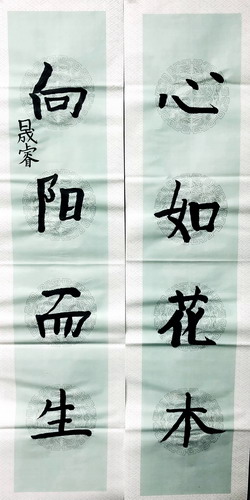 心如花木
向阳而生
晟睿